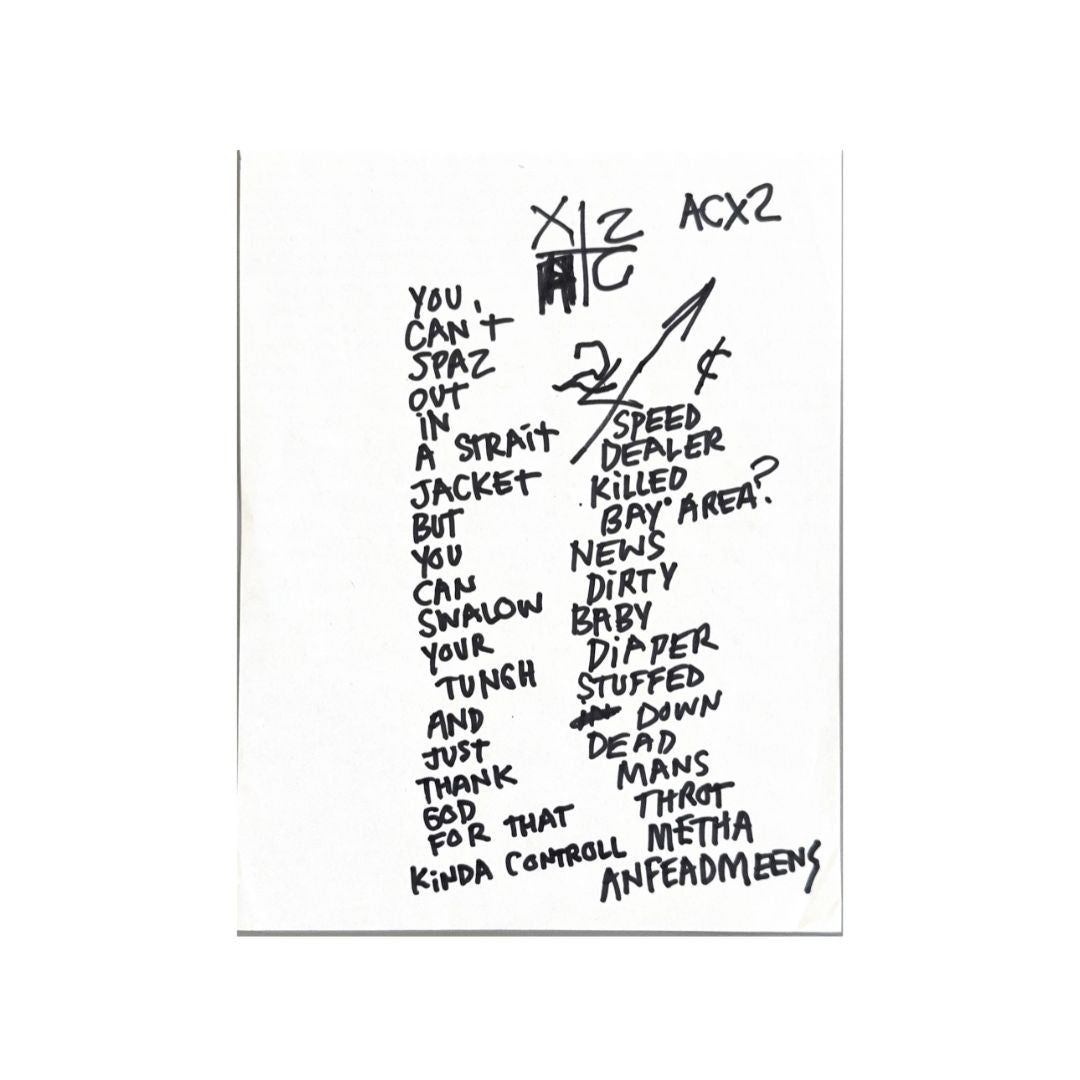 X 2 ACX2
A C
YOU
CAN'T
SPAZ
OUT
IN
A STRAiT
JACKET
BUT
YOU
CAN
SWALOW
YOUR
TUNGH
AND
JUST
THANK
GOD
FOR THAT
KiNDA CONTROLL
2 ¢
SPEED
DEALER
KiLLED
BAY AREA?
NEWS
DiRTY
BABY
DiAPER
STUFFED
DOWN
DEAD
MANS
THROT
METHA
ANFEADMEENS